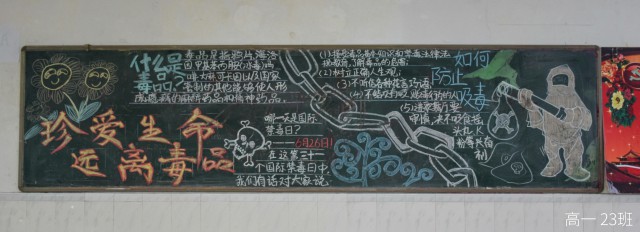 什么是
毒品?
毒品是指鸦片海洛
因甲基苯丙胺(冰毒)吗
啡大麻可卡因以及国家
规定管制的其他能够使人形
成瘾癖的麻醉药品和精神药品。
珍爱生命
远离毒品
哪一天是国际
禁毒日?
6月26日!
在这第三十一
个国际禁毒日中,
我们有话对大家说
如何
防止
吸毒
(1)接受毒品基本知识和禁毒法律法
规教育,了解毒品的危害;
(2)树立正确人生观;
(3)不听信各种花言巧语;
(4)不结交有吸
(5)进歌厅要
审慎,决不吸食摇
头丸、K
粉等兴奋
剂
高一 23班